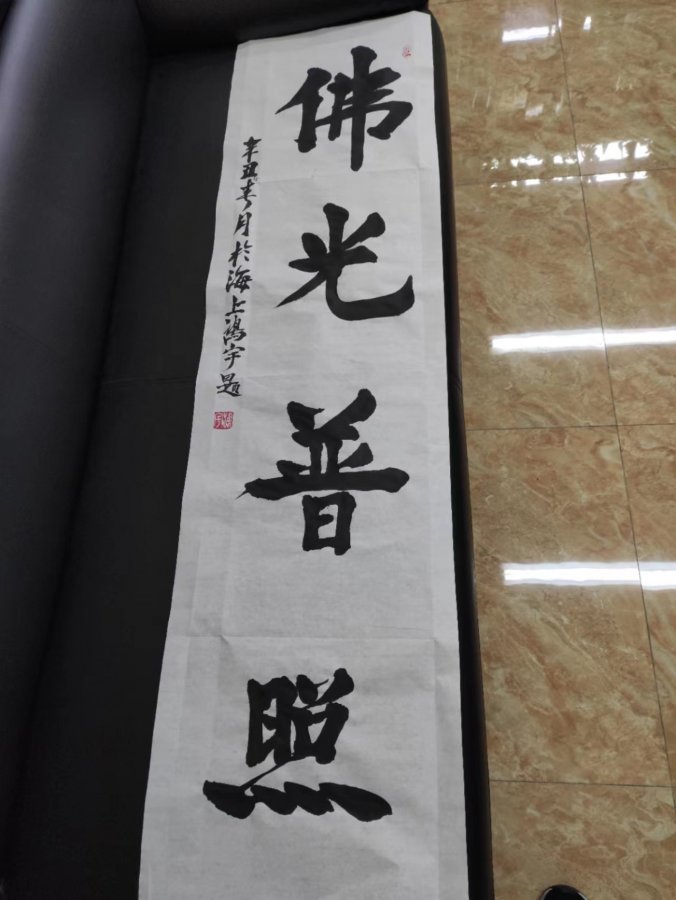 佛光普照
辛丑春月於海上鴻宇题